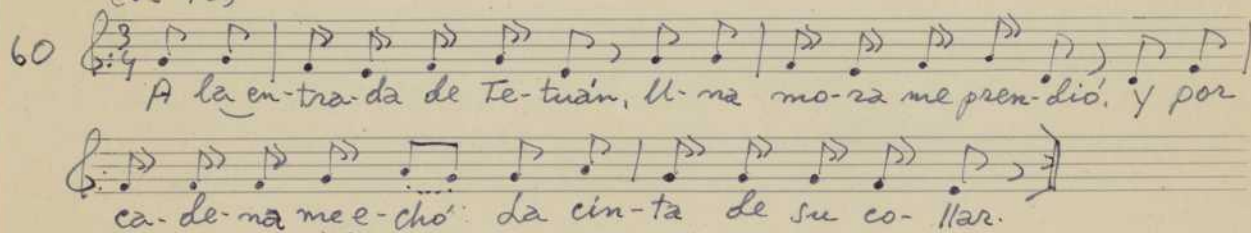 60 3/4 A la en-tra-da de Te-tuán, U-na mo-ra me pren-dió. y por
ca-de-na me e-chó: La cin-ta de su co-llar.